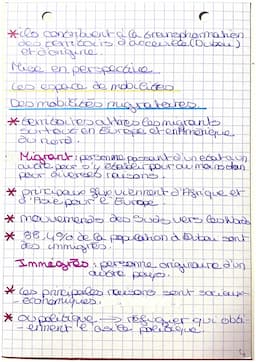 * ils contribuent à la transformation
des territoires d'accueil (Dubaï)
et d'origine.
Mise en perspective
Les espaces de mobilités
Des mobilités migratoires
* territoires attires les migrants
surtout en Europe et en Amérique
du nord.
Migrant: personne passant d'un état à un
autre pour s'y établir pour au moins 1 an
pour diverses raisons.
* principaux flux viennent d'Afrique et
d'Asie pour l'Europe.
* mouvements des Suds vers les Nords
* 88,4% de la population à Dubaï sont
des immigrés.
Immigrés: personne originaire d'un
autre pays.
* les principales raisons sont sociaux-
économiques.
* ou politique → réfugier qui obti-
ennent l'asile politique.